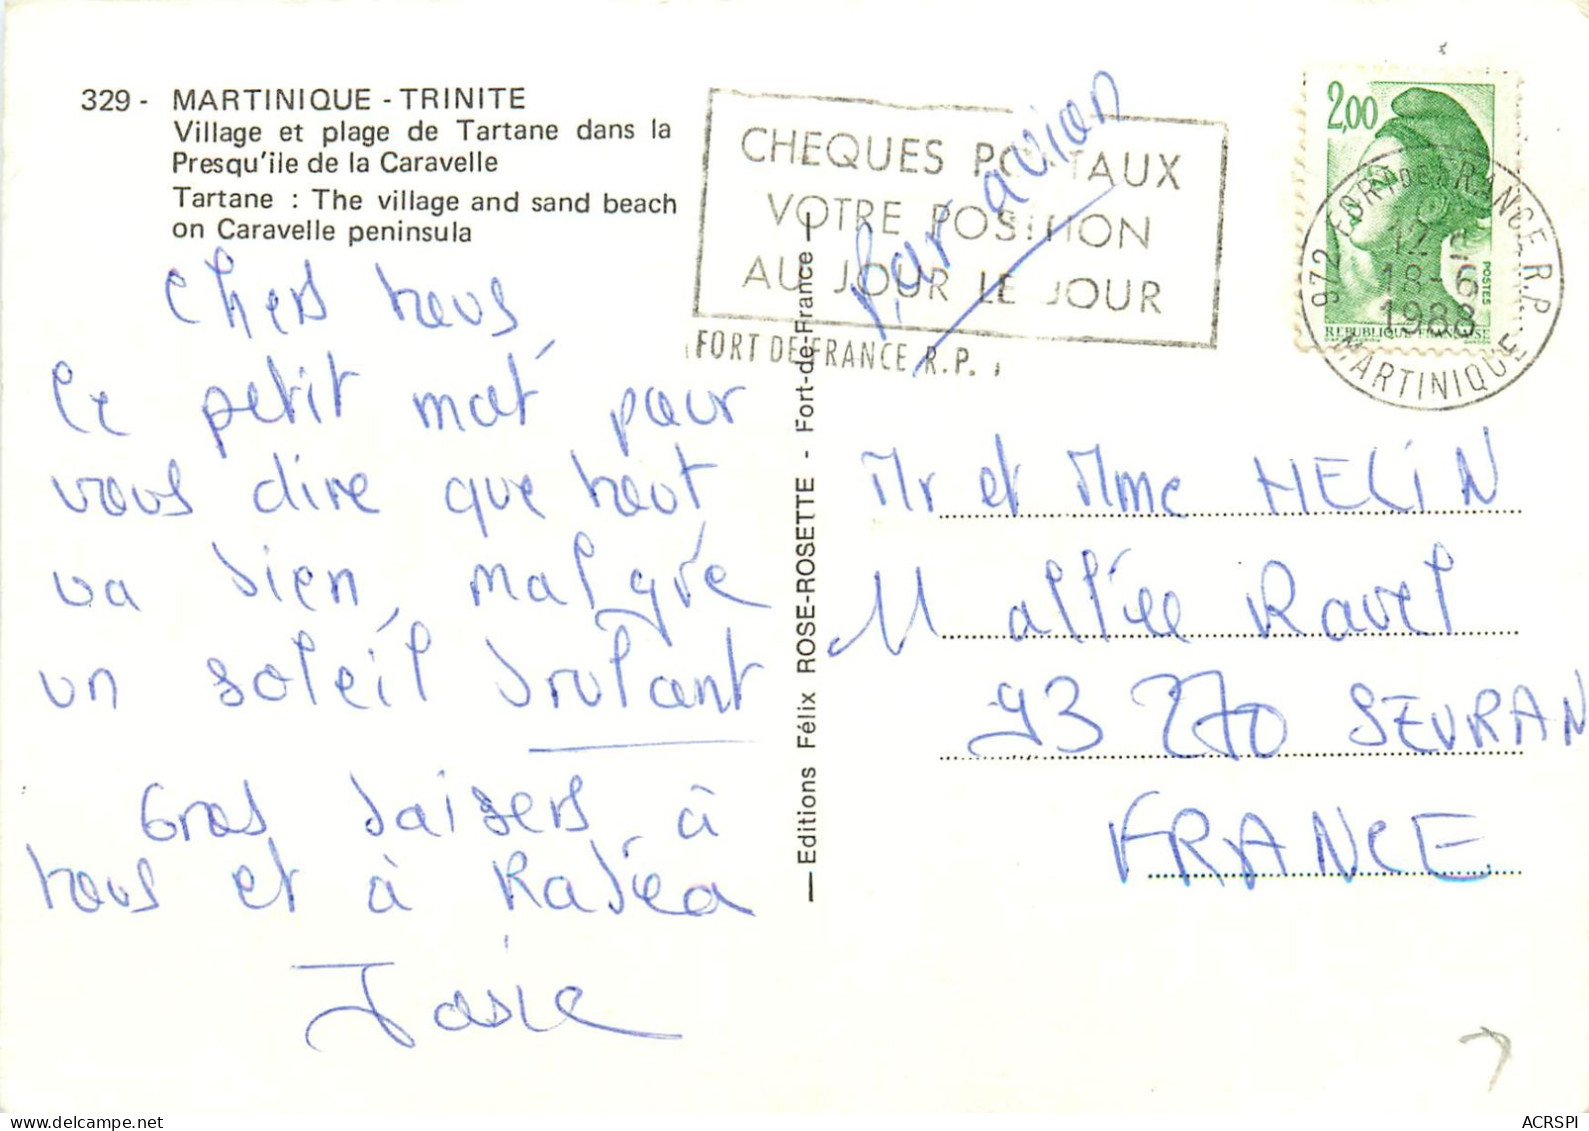 329 - MARTINIQUE - TRINITE
Village et plage de Tartane dans la
Presqu'ile de la Caravelle
Tartane : The village and sand beach
on Caravelle peninsula
Chers tous
Ce petit mot pour
vous dire que tout
va bien, malgré
un soleil brulant
Gros baisers à
tous et à Katéa
Josie
Editions Félix ROSE-ROSETTE - Fort-de-France
CHEQUES POSTAUX
VOTRE POSITION
AU JOUR LE JOUR
FORT DE FRANCE R.P.
Par avion
2,00
POSTES
REPUBLIQUE FRANÇAISE
972 FORT DE FRANCE R.P.
18-6
1988
MARTINIQUE
Mr et Mme HELIN
11 allée Ravel
93 270 SEVRAN
FRANCE
ACRSPI